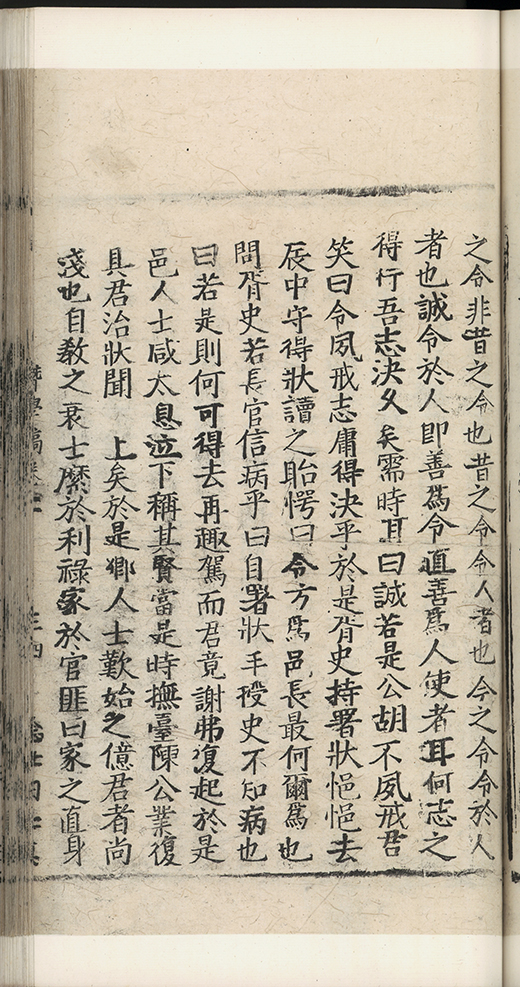 之令非昔之令也昔之令令人者也今之令令於人
者也誠令於人即善爲令直善爲人使者耳何志之
得行吾志決久矣需時耳曰誠若是公胡不夙戒君
笑曰令夙戒志庸得決乎於是胥史持署狀悒悒去
辰中守得狀讀之眙愕曰令方爲邑長最何爾爲也
問胥史若長官信病乎曰自署狀手授史不知病也
曰若是則何可得去再趣駕而君竟謝弗復起於是
邑人士咸太息泣下稱其賢當是時撫臺陳公業復
具君治狀聞 上矣於是鄉人士歎始之億君者尚
淺也自教之衰士縻於利祿家於官匪曰家之直身